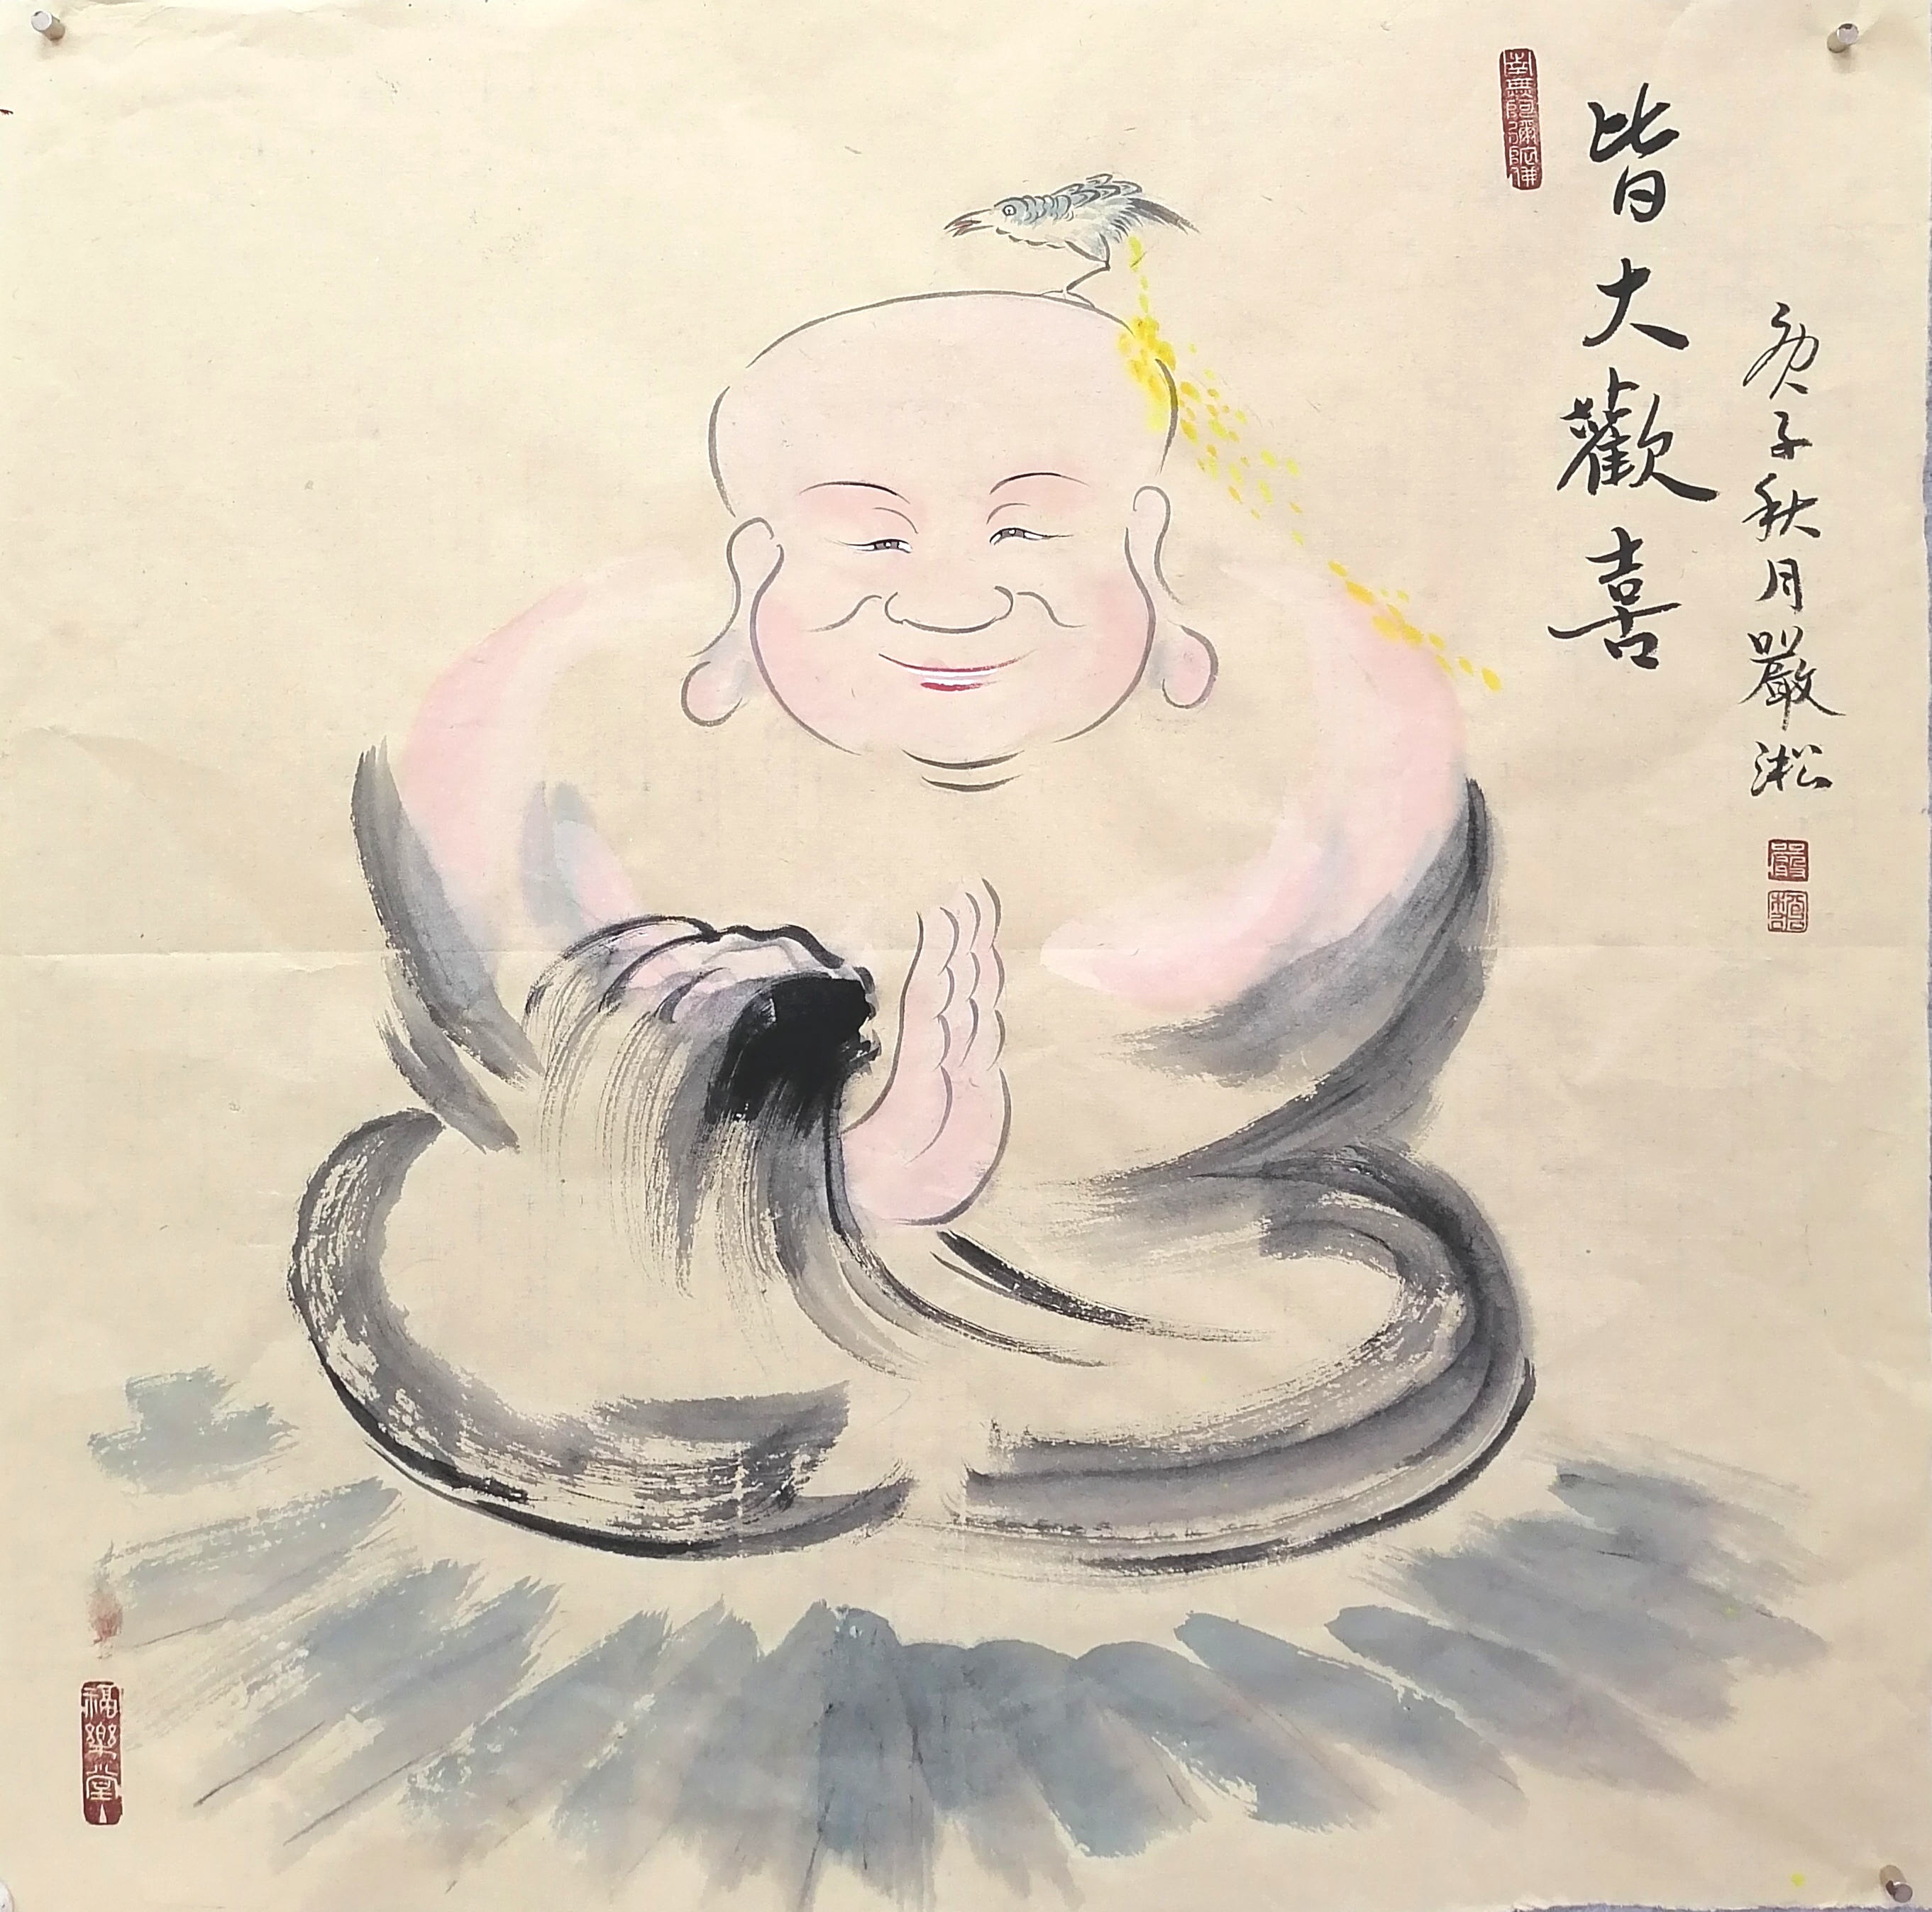 南無阿彌陀佛
皆大歡喜
庚子秋月嚴淞
嚴
福樂堂